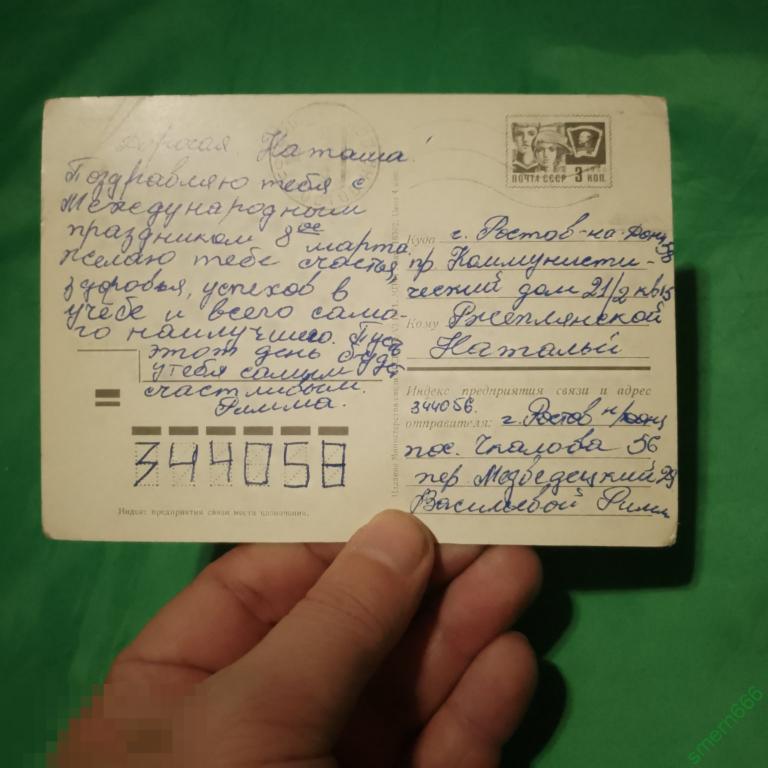 Дорогая Наташа!
Поздравляю тебя с
Международным
праздником 8ое марта,
желаю тебе счастья,
здоровья, успехов в
учёбе и всего само-
го наилучшего. Пусть
этот день будет
у тебя самым
счастливым.
Римма.
344058
Индекс предприятия связи места назначения.
ПОЧТА СССР 3 КОП.
Куда г. Ростов-на-Дону 58
пр. Коммунисти-
ческий дом 21/2 кв 15
Кому
Натальи
Индекс предприятия связи и адрес
344056.
отправителя: г. Ростов н/Дону
пос. Чкалова 56
пер. Медведецкий 29
Васильевой Римм
smern666